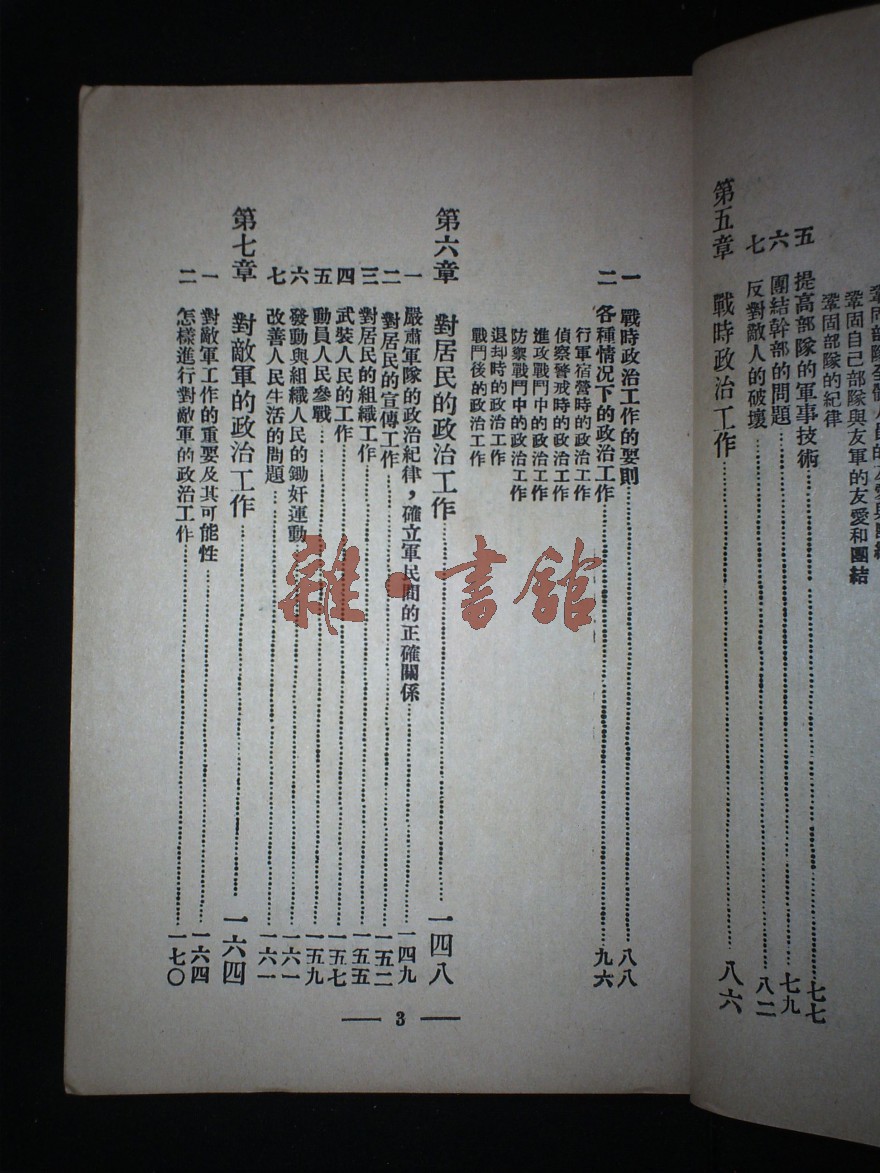 鞏固自己部隊與友軍的友愛和團結
鞏固部隊的紀律
五 提高部隊的軍事技術 七七
六 團結幹部的問題 七九
七 反對敵人的破壞 八二
第五章 戰時政治工作 八六
一 戰時政治工作的要則 八八
二 各種情況下的政治工作 九六
行軍宿營時的政治工作
偵察警戒時的政治工作
進攻戰鬥中的政治工作
防禦戰鬥中的政治工作
退却時的政治工作
戰鬥後的政治工作
第六章 對居民的政治工作 一四八
一 嚴肅軍隊的政治紀律，確立軍民間的正確關係 一四九
二 對居民的宣傳工作 一五二
三 對居民的組織工作 一五五
四 武裝人民的工作 一五七
五 動員人民參戰 一五九
六 發動與組織人民的鋤奸運動 一六一
七 改善人民生活的問題 一六一
第七章 對敵軍的政治工作 一六四
一 對敵軍工作的重要及其可能性 一六四
二 怎樣進行對敵軍的政治工作 一七〇
3
雜·書館